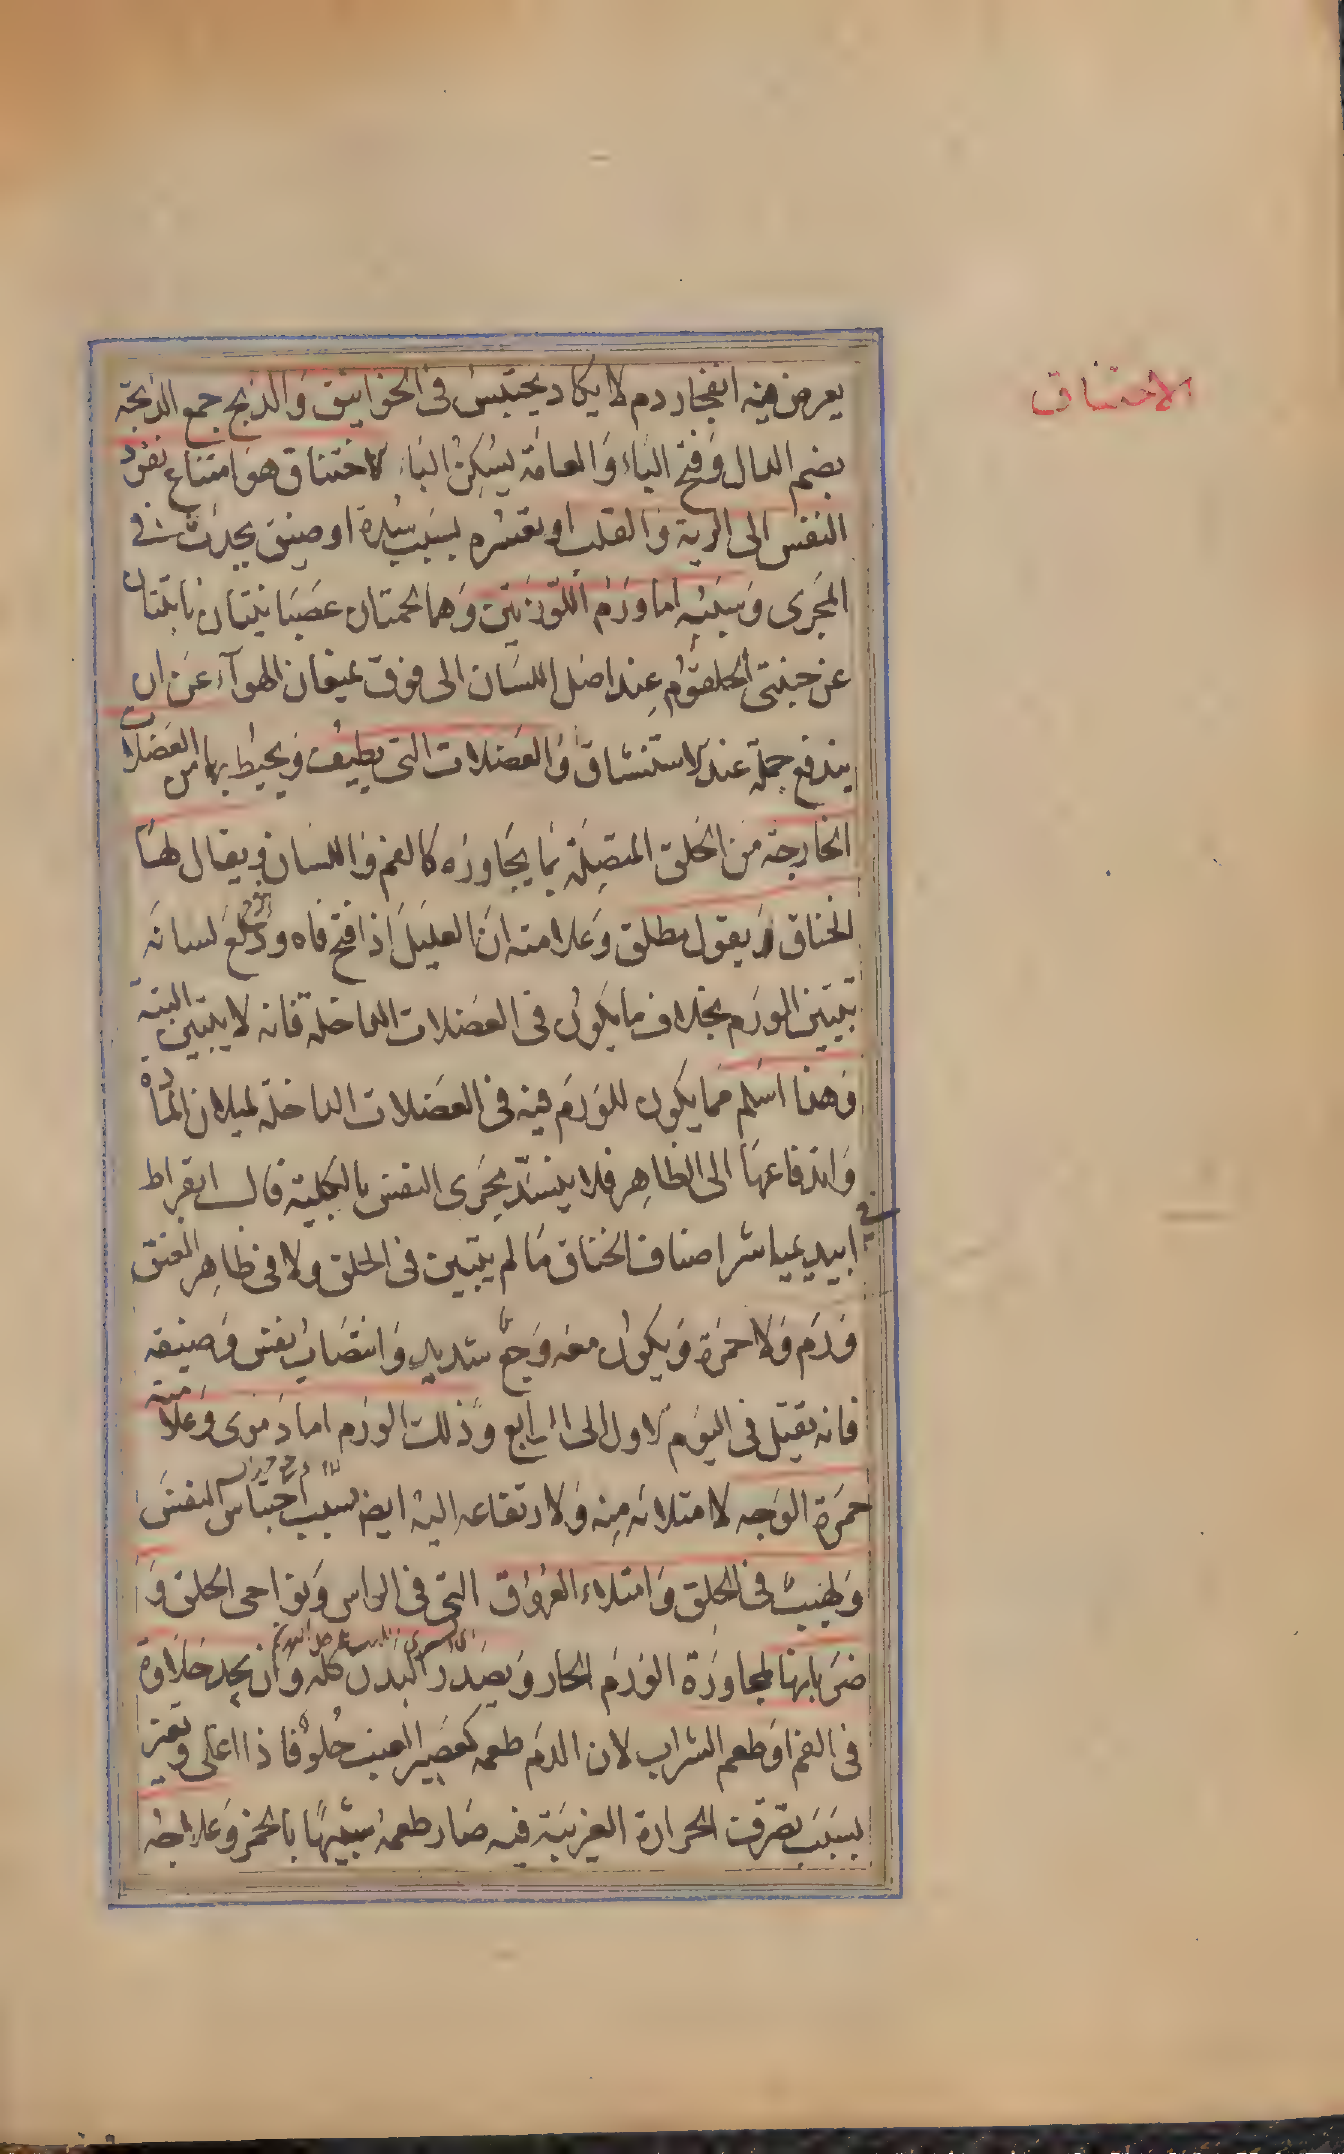 الاختناق
يعرض فيه انفجار دم لا يكاد يحتبس فى الخوانيق والذبح جمع الذبحة
بضم الدال وفتح الباء والعامة يسكن الباء الاختناق هو امتناع نفوذ
النفس الى الرية والقلب او تعسره بسبب سدة او ضيق يحدث فى
المجرى وسببه اما ورم اللوزتين وهما لحمتان عصبانيتان نابتتان
عن جنبتى الحلقوم عند اصل اللسان الى فوق يمنعان الهوآء عن ان
يندفع جملة عند الاستنشاق او العضلات التى يطيف ويحيط بهما من العضلات
الخارجة من الحلق المتصلة بما يجاوره كالفم واللسان ويقال لها
الخناق بقول مطلق وعلامته ان العليل اذا فتح فاه ودلع لسانه
تبين الورم بخلاف ما يكون فى العضلات الداخلة فانه لا يتبين البتة
وهذا اسلم مما يكون للورم فيه فى العضلات الداخلة لميلان المادة
واندفاعها الى الظاهر فلا ينسد مجرى النفس بالكلية قال ابقراط
فى ابيديميا شر اصناف الخناق ما لم يتبين فى الحلق ولا فى ظاهر العنق
ورم ولا حمرة ويكون معه وجع شديد وانتصاب نفس وضيقه
فانه يقتل فى اليوم الاول الى الرابع وذلك الورم اما دموى وعلامته
حمرة الوجه لامتلائه منه ولارتفاعه اليه ايض بسبب احتباس النفس
ولهيب فى الحلق وامتلاء العروق التى فى الراس ونواحى الحلق و
ضربانها لمجاورة الورم الحار وبصدر البدن كله وان يجد حلاوة
فى الفم او طعم الشراب لان الدم طعمه كعصير العنب حلو فاذا اغلى وتغير
بسبب تصرف الحرارة الغريبة فيه صار طعمه شبيها بالخمر وعلاجه